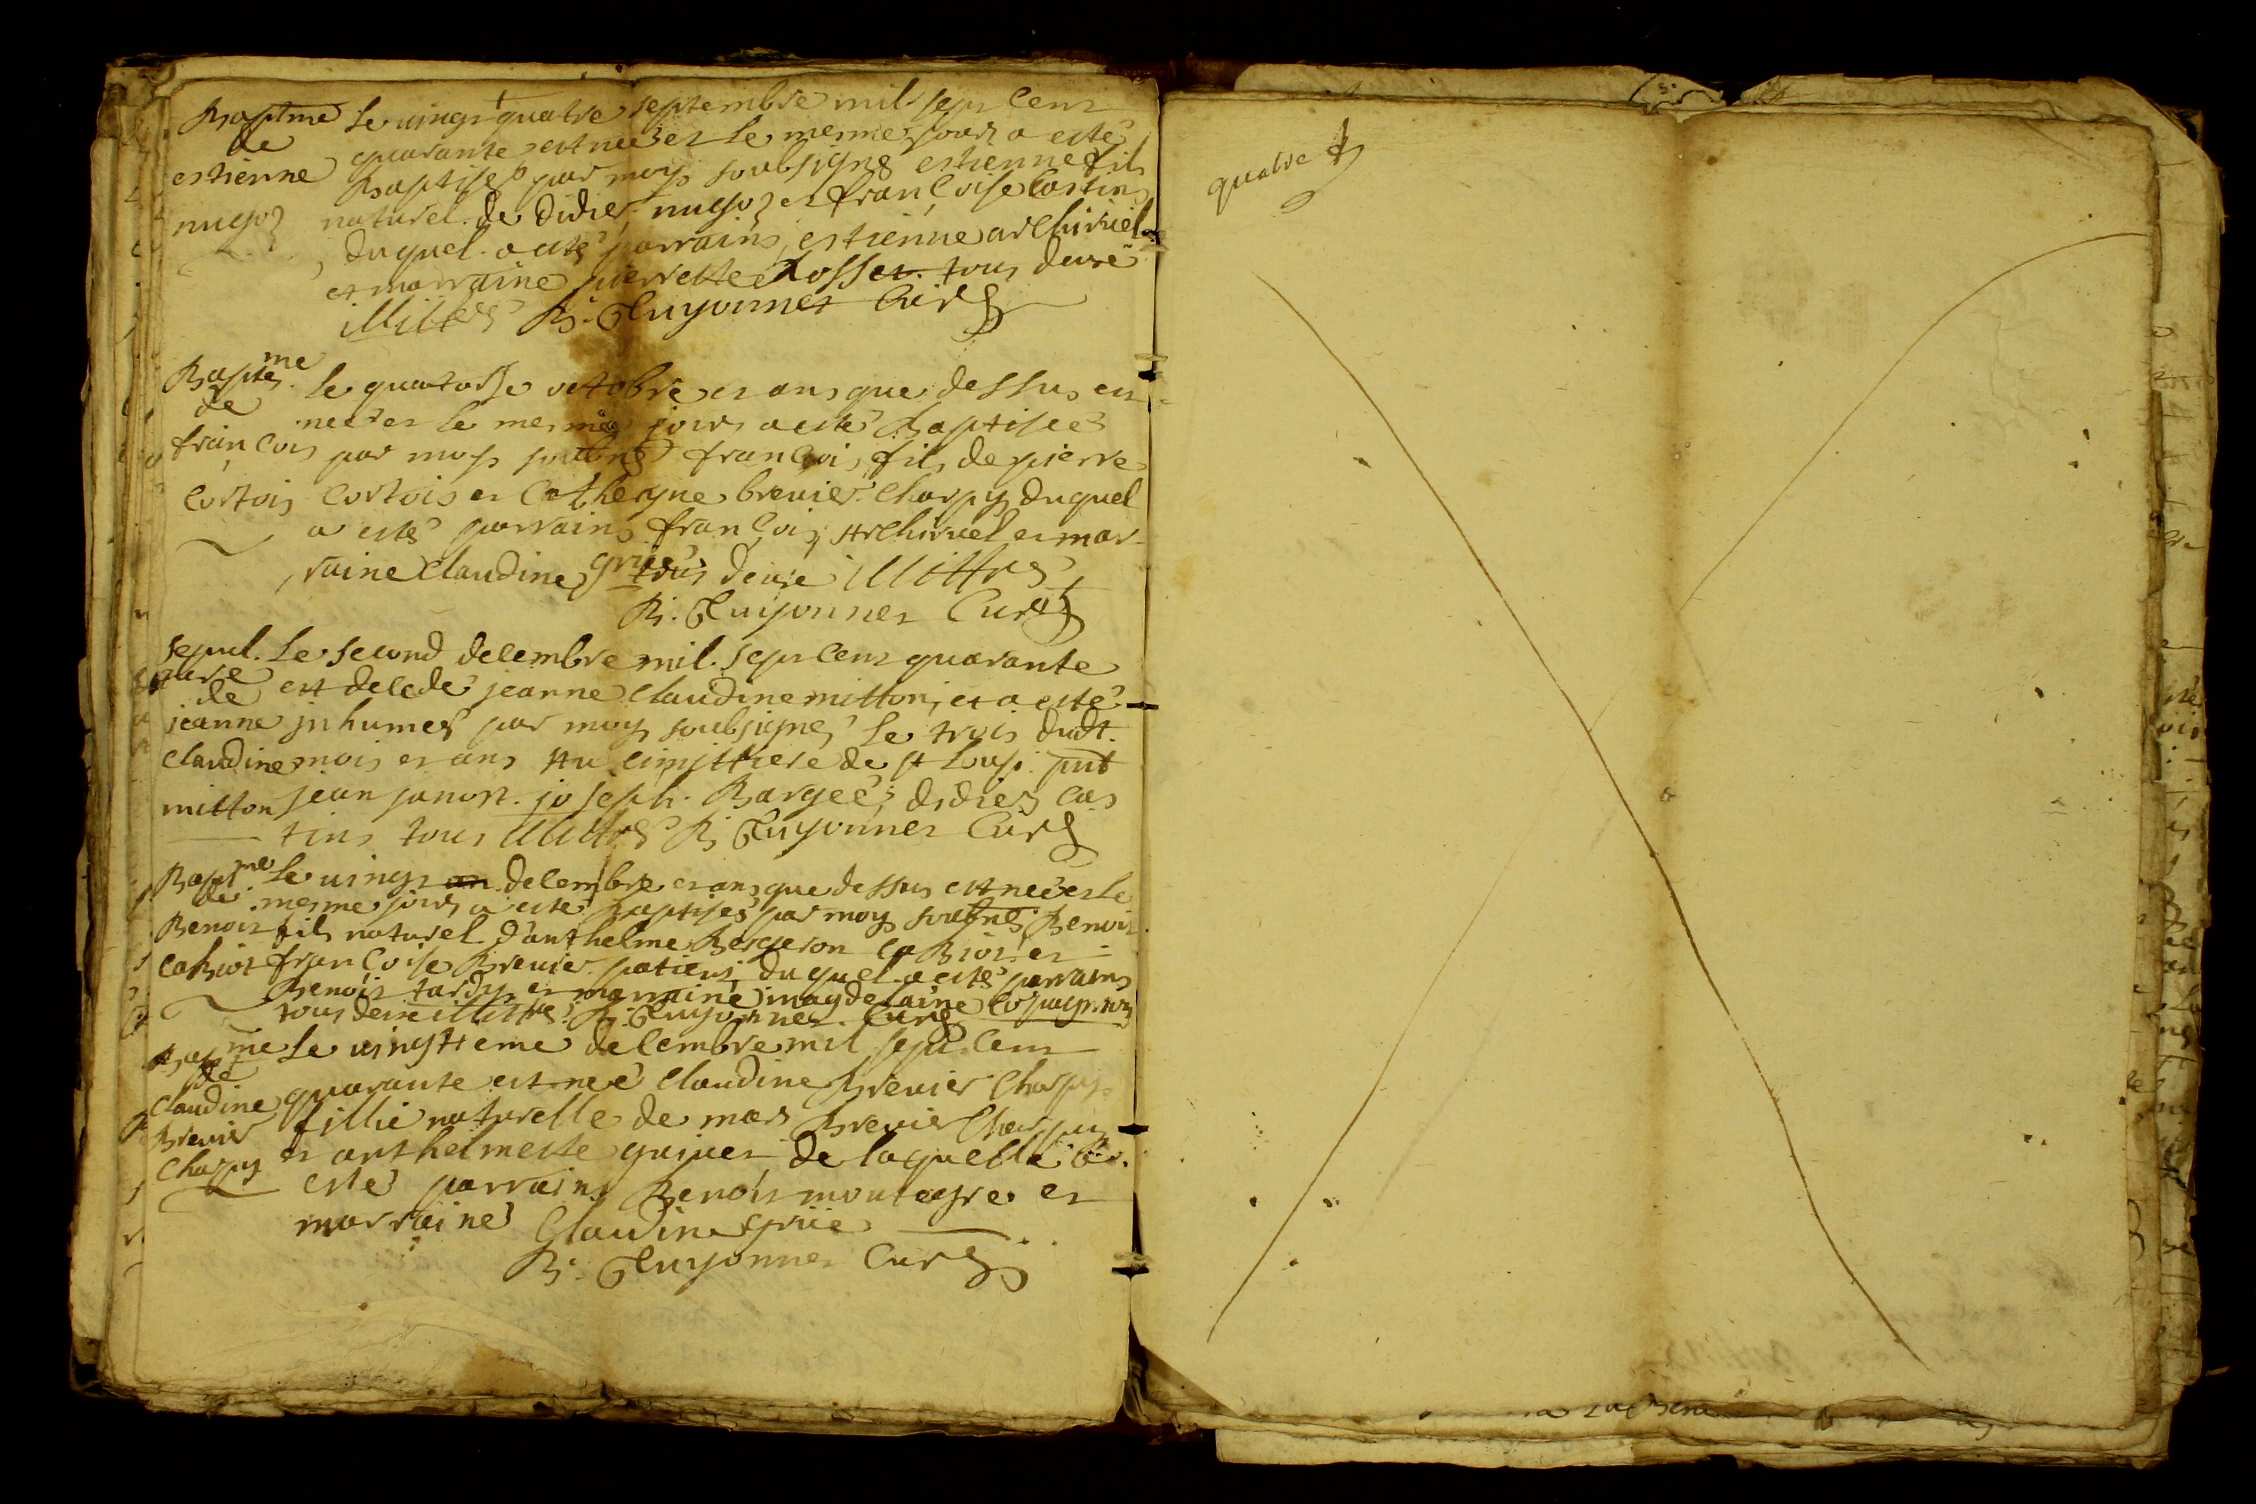 Baptme
de
estienne
nugoz
Le vingt quatre septembre mil sept cent
quarante est née et le mesme jour a esté
Baptisé par moy soubsigné estienne fils
naturel de didier nugoz et françoise Castin
duquel a esté parrains estienne archiriel
et marraine pierrette Rosset tous deux
illitrés R. Guyonnet Curé
Baptesme
de
françois
Cortois
Le quatorse octobre et ans que dessus est
née et le mesme jours a esté Baptisée
par moy soubné françois fils de pierre
Cortois et Catheryne brevier Charpy duquel
a esté parrains françois Archiriel et mar-
raine Claudine grie tous deux illittrés
R. Guyonnet Curé
sepulture
de
jeanne
Claudine
mitton
Le second decembre mil sept cent quarante
est decedé jeanne Claudine mitton, et a esté
inhumés par moy soubsigné le trois dudt
mois et ans Au cimittiere de st Loup pnt
jean janon joseph Bargeé, didiez Cas
tins tous illittrés R Guyonnet Curé
Baptme
de
Benoit
Cabiot
Le vingt decembre et ans que dessus est née et le
mesme jours a esté baptisés par moy soubné Benoit
fils naturel d'anthelme Bergeron Cabiot et
françoise Brevier patiens duquel a esté parrains
Benoit tardy et marraine magdelaine
tous deux illittrés R. Guyonnet Curé
Baptme
de
Claudine
Brevier
Charpy
Le vingtieme decembre mil sept cent
quarante est neé Claudine Brevier Charpy
fillie naturelle de marc Brevier Charpy
et anthelmette guiuet de laquelle a
esté parrains Benoit montagre et
marraine Claudine grie
R. Guyonnet Curé
quatre